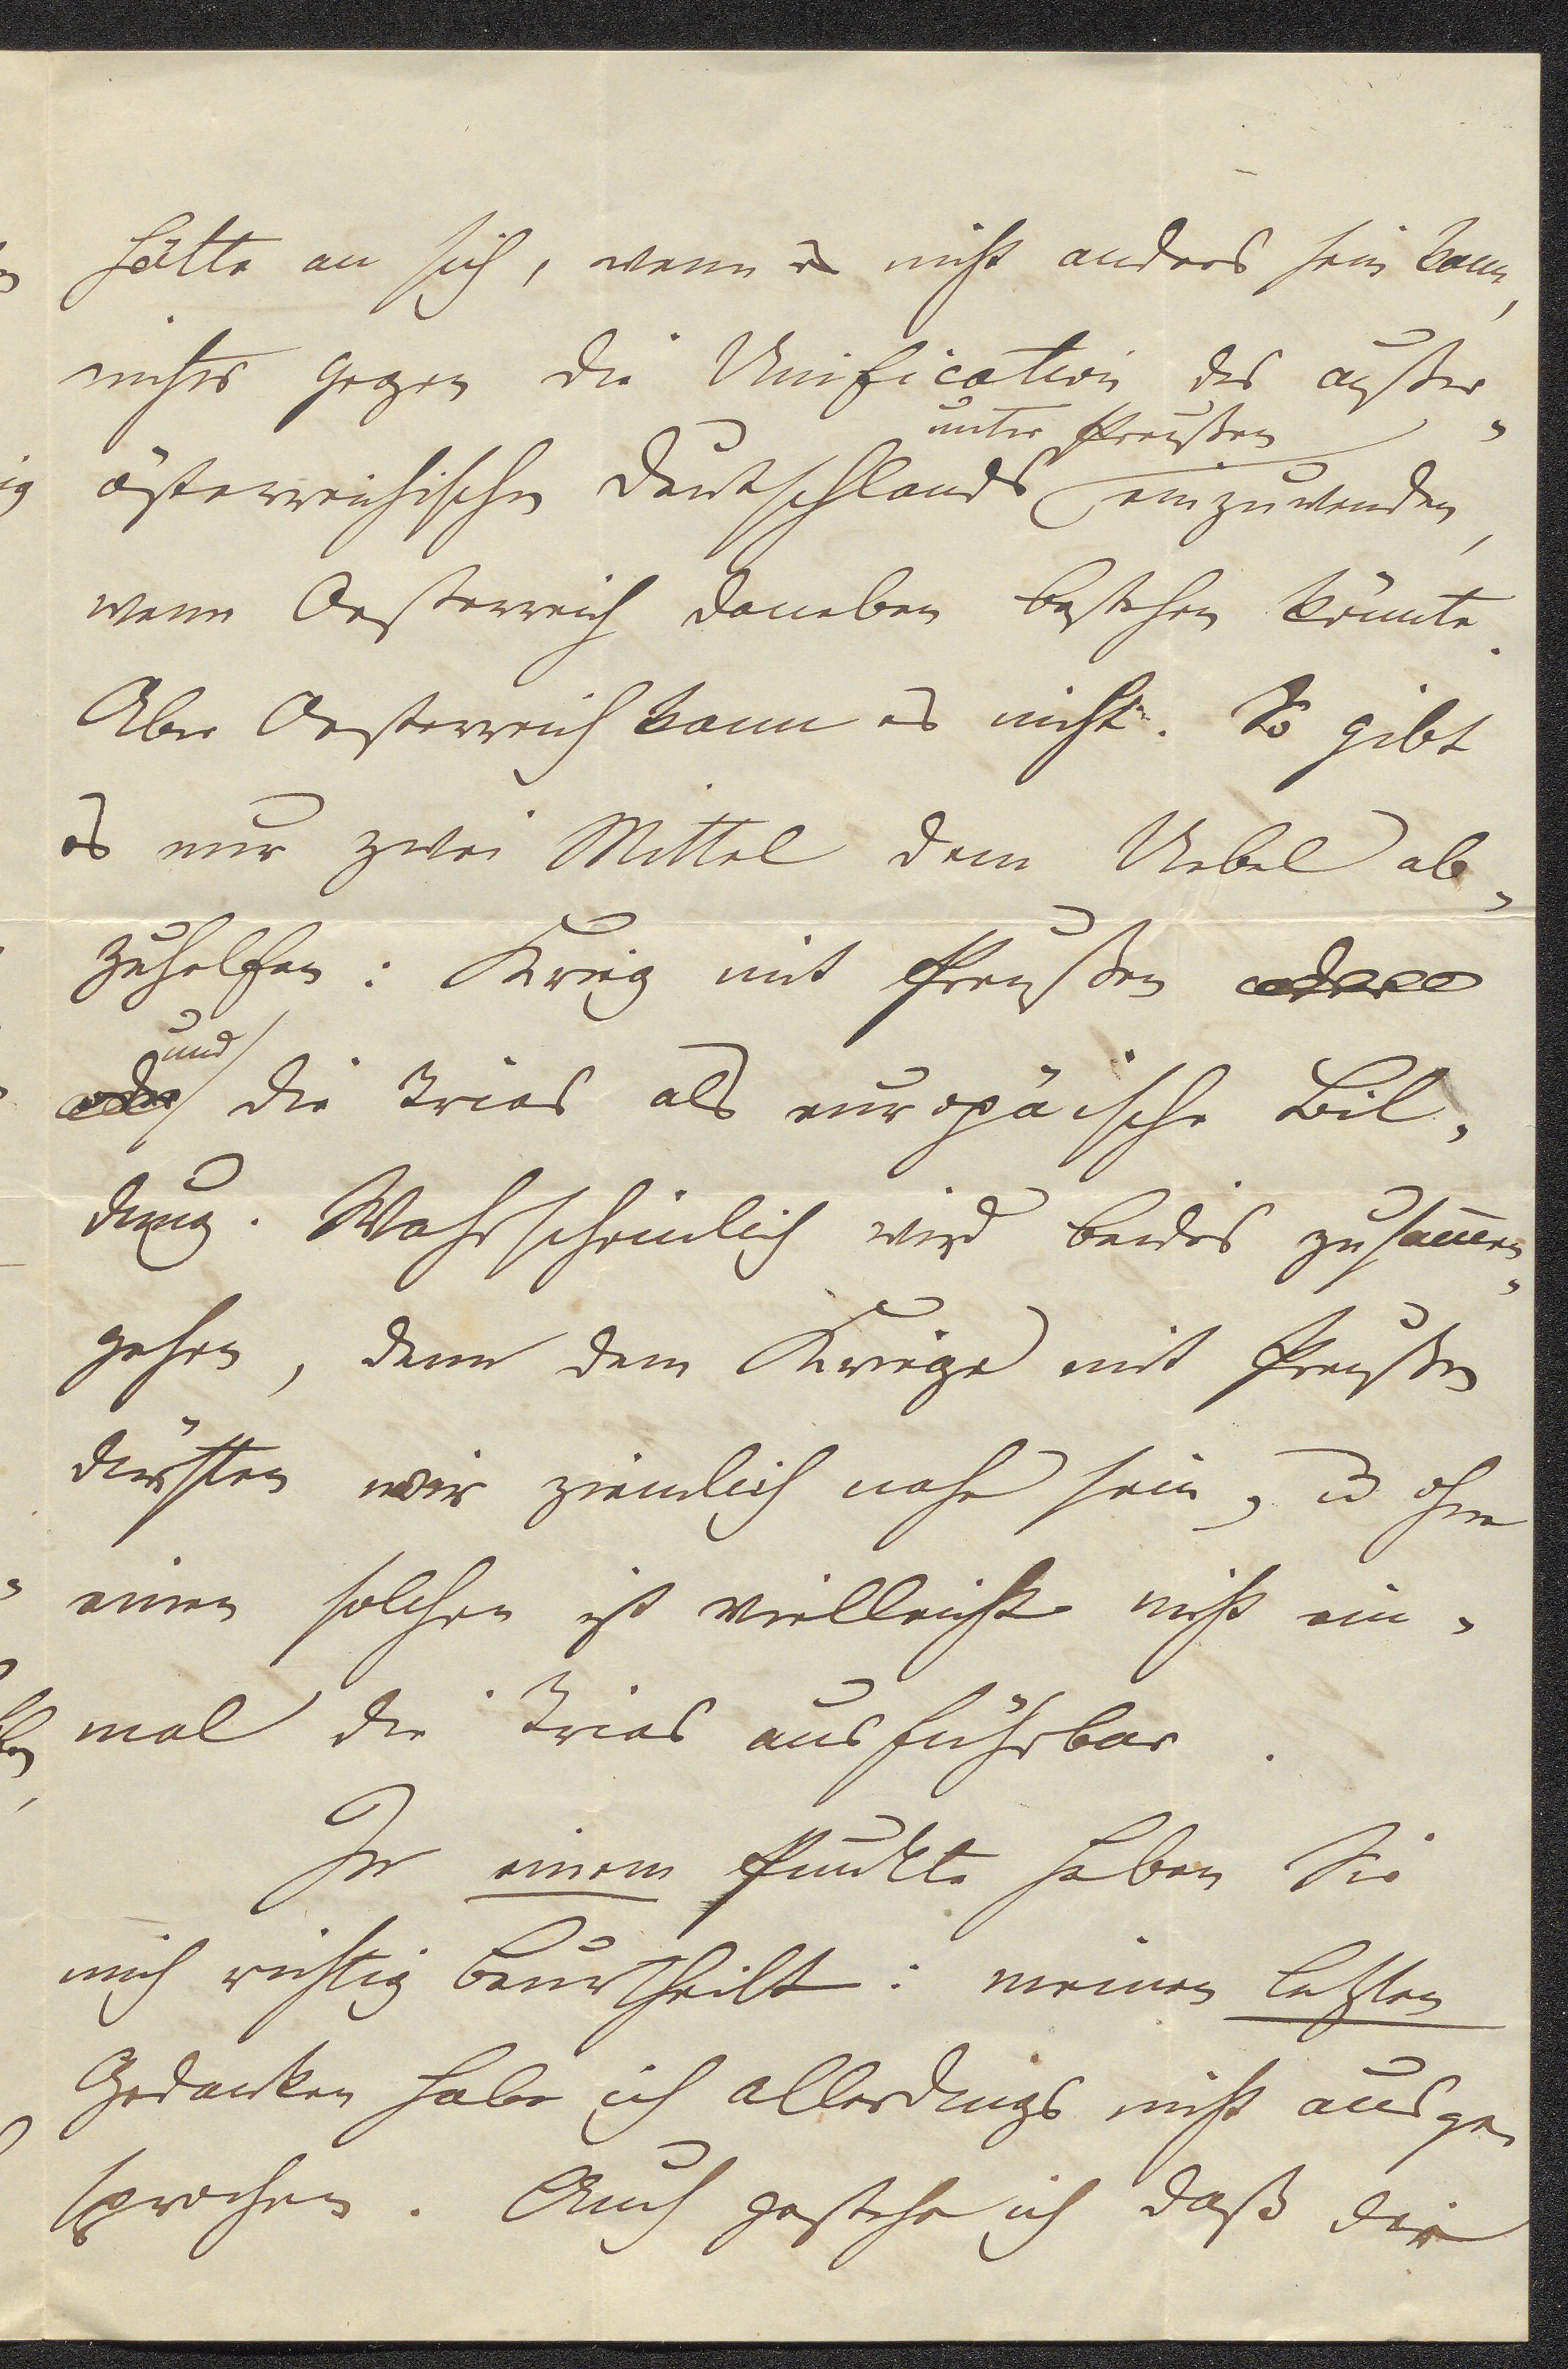 hätte an sich, wenn es nicht anders sein kann,
nichts gegen die Unification des außer-
österreichischen Deutschlands unter Preußen einzuwenden,
wenn Oesterreich daneben bestehen könnte.
Aber Oesterreich kann es nicht. So gibt
es nur zwei Mittel dem Uebel ab-
zuhelfen: Krieg mit Preußen
und die Trias als europäische Bil-
dung. Wahrscheinlich wird beides zusammen-
gehen, denn dem Kriege mit Preußen
dürften wir ziemlich nahe sein, u ohne
einen solchen ist vielleicht nicht ein-
mal die Trias ausführbar.
In einem Punkte haben Sie
mich richtig beurtheilt: meinen letzten
Gedanken habe ich allerdings nicht ausge-
sprochen. Auch gestehe ich daß die